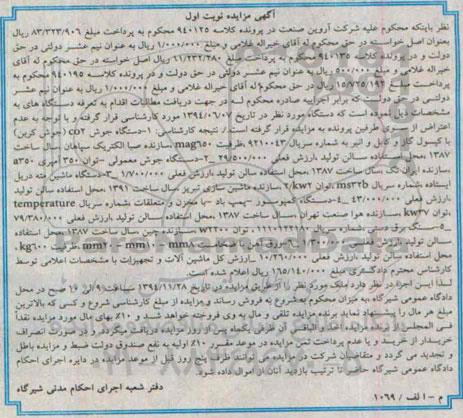 آگهی مزایده نوبت اول
نظر باینکه محکوم علیه شرکت آروین صنعت در پرونده کلاسه ۹۴۰۱۲۵ محکوم به پرداخت مبلغ ۸۳/۳۲۳/۹۰۶ ریال
بعنوان اصل خواسته در حق محکوم له آقای خیراله غلامی و مبلغ ۱/۰۰۰/۰۰۰ ریال به عنوان نیم عشر دولتی در حق
دولت و در پرونده کلاسه ۹۴۰۱۳۵ محکوم به پرداخت مبلغ ۶۱/۲۳۲/۲۸۰ ریال اصل خواسته در حق محکوم له آقای
خیراله غلامی و مبلغ ۵۰۰/۰۰۰ ریال به عنوان نیم عشر دولتی در حق دولت و در پرونده کلاسه ۹۴۰۱۹۵ محکوم به
پرداخت مبلغ ۱۵/۷۲۵/۱۹۲ ریال در حق محکوم له آقای خیراله غلامی و مبلغ ۱/۰۰۰/۰۰۰ ریال به عنوان نیم عشر
دولتی در حق دولت که برابر اجراییه صادره محکوم له در جهت دریافت مطالبات اقدام به تعرفه دستگاه های به
مشخصات ذیل نموده است که دستگاه مورد نظر در تاریخ ۱۳۹۴/۰۶/۰۷ مورد کارشناسی قرار گرفته و با توجه به عدم
اعتراض از سوی طرفین پرونده به مزایده قرار گرفته است./ نتیجه کارشناسی: ۱-دستگاه جوش co۲ (جوش کربن)
با کپسول گاز و کابل و انبر به شماره سریال ۹۲۱۰۰۴۳ ،ظرفیت mag۶۵۰ ،سازنده صبا الکتریک سپاهان ،سال ساخت
۱۳۸۷ ،محل استفاده سالن تولید ،ارزش فعلی ۲۹/۵۰۰/۰۰۰ ۲-دستگاه جوش معمولی -توان ۳۵۰ آمپری a۳۵۰
،سازنده ایران تک ،سال ساخت ۱۳۸۷ ،محل استفاده سالن تولید ،ارزش فعلی ۱/۷۰۰/۰۰۰ ۳-دستگاه ماشین مته دریل
ایستاده ،شماره سریال ms۳۲b ،توان ۲/kw۲ ،سازنده ماشین سازی تبریز ،سال ساخت ۱۳۹۱ ،محل استفاده سالن تولید
،ارزش فعلی ۴۳/۰۰۰/۰۰۰ ۴-دستگاه کمپرسور -پمپ باد -با مخزن و متعلقات ،شماره سریال temperature
،توان kw۳۷ ،سازنده هوا صنعت تهران ،سال ساخت ۱۳۸۷ ،محل استفاده سالن تولید ،ارزش فعلی ۷۹/۳۸۰/۰۰۰
۵-سنگ برق دستی ،توان w۲۲۰۰ ،سازنده چین ،سال ساخت ۱۳۸۷ ،محل استفاده
محل استفاده سالن تولید ،ارزش فعلی ۱۰/۲۶۰/۰۰۰ ،ارزش کل ماشین آلات و تجهیزات با مشخصات اعلامی توسط
کارشناس محترم دادگستری مبلغ ۱۶۵/۱۴۰/۰۰۰ ریال اعلام شده است.
لذا این اجرا در نظر دارد ماملک مورد نظر را از طریق مزایده در تاریخ ۱۳۹۴/۱۱/۲۸ ساعت ۹ الی ۱۰ صبح در محل
دادگاه عمومی شیرگاه به میزان محکوم به شروع به فروش رساند و مزایده از مبلغ کارشناسی شروع و کسی که بالاترین
مبلغ هر مال را پیشنهاد نماید برنده مزایده تلقی و مال به وی فروخته خواهد شد و ۱۰٪ بهای مال مورد مزایده نقدا
فی المجلس از برنده مزایده اخذ و الباقی آن ظرف یکماه پس از روز مزایده دریافت میگردد در صورت انصراف
خریدار از خرید و یا عدم پرداخت ثمن مزایده در موعد مقرر ۱۰٪ اولیه به نفع صندوق دولت ضبط و مزایده باطل
و تجدید می گردد و متقاضیان شرکت در مزایده می توانند ظرف پنج روز قبل از موعد مزایده در دایره اجرای احکام
دادگاه عمومی شیرگاه حاضر تا ترتیب بازدید آنان از اموال داده شود.
دفتر شعبه اجرای احکام مدنی شیرگاه
م - الف / ۱۰۶۹